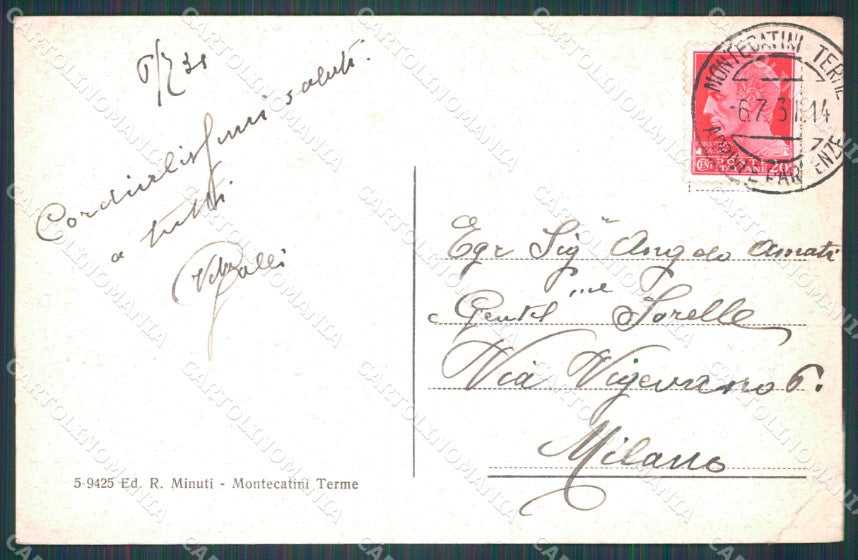 6/7 31
Cordialissimi saluti
a tutti
Galli
MONTECATINI TERME
-6.7.31.14
ARRIVI E PARTENZE
POSTE
CENT 20
Egr Sig Angelo Amati
Gentil me Sorelle
Via Vigevano 6.
Milano
5-9425 Ed. R. Minuti - Montecatini Terme
CARTOLINOMANIA